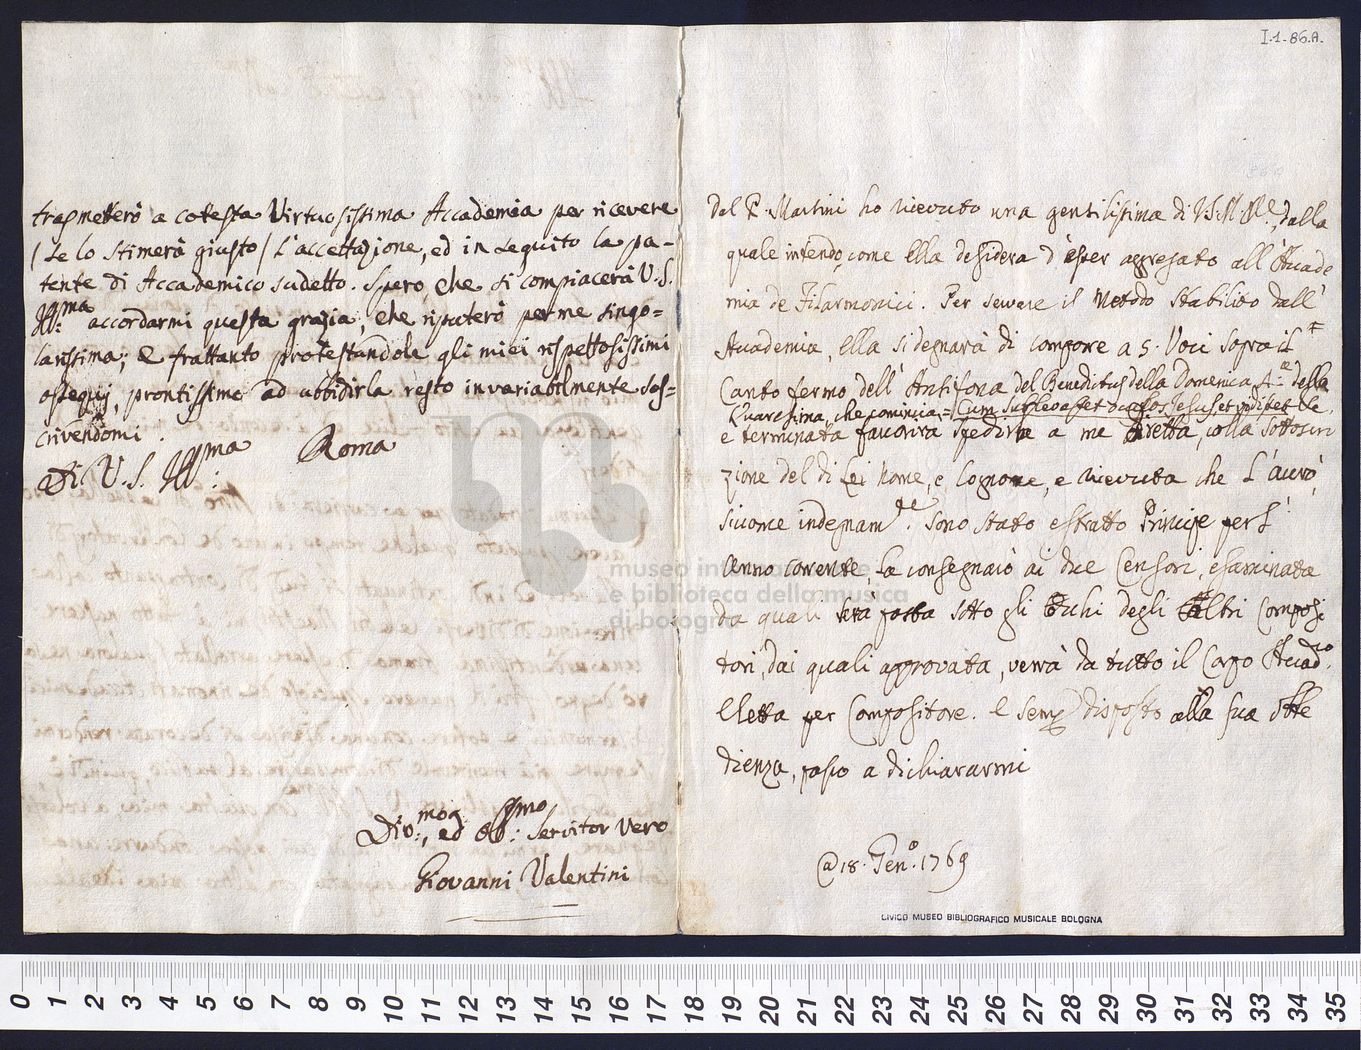 I.1-86.A.
trasmetterò a cotesta Virtuosissima Accademia per ricevere
(se lo stimerà giusto) l'accettazione, ed in seguito la pa-
tente di Accademico sudetto. Spero, che si compiacerà V.S.
Ill:ma accordarmi questa grazia, che riputerò per me singo=
larissima; e frattanto protestandole gli miei rispettosissimi
ossequj, prontissimo ad ubbidirla resto invariabilmente sos=
crivendomi.
Di V.S. Ill:ma Roma
Div:mo, ed Obb:mo Servitor Vero
Giovanni Valentini
Dal P. Martini ho ricevuto una gentilissima di V.S. dalla
quale intendo, come Ella desidera d'esser aggregato all'Accade
mia de Filarmonici. Per servare il Metodo stabilito dall'
Accademia, Ella si degnarà di comporre a 5. Voci sopra il
Canto fermo dell'Antifona del Benedictus della Domenica 4.a della
Quaresima, che comincia = Cum sublevasset oculos Jesus, et
e terminata favorirà spedirla a me diretta, colla sottoscri
zione del di Lei Nome, e Cognome, e ricevuta che l'avrò,
siccome indegnam.te sono stato estratto Principe per l'
anno corrente, la consegnarò ai due Censori, esaminata
da quali serà posta sotto gli Occhi degli Altri Composi
tori, dai quali approvata, verrà da tutto il Corpo Accad.co
eletta per Compositore. e semp. disposto alla sua Obbe
dienza, passo a dichiararmi
@ 18. Gen.o 1769
CIVICO MUSEO BIBLIOGRAFICO MUSICALE BOLOGNA
museo internazionale
e biblioteca della musica
di bologna
0 1 2 3 4 5 6 7 8 9 10 11 12 13 14 15 16 17 18 19 20 21 22 23 24 25 26 27 28 29 30 31 32 33 34 35